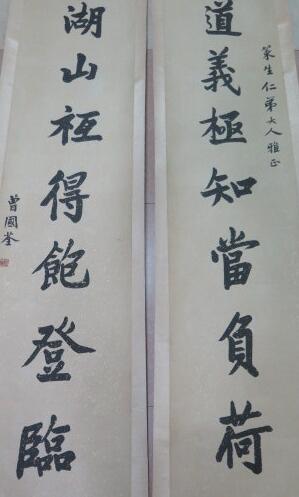 策生仁弟大人雅正
道義極知當負荷
湖山祇得飽登臨
曾國荃